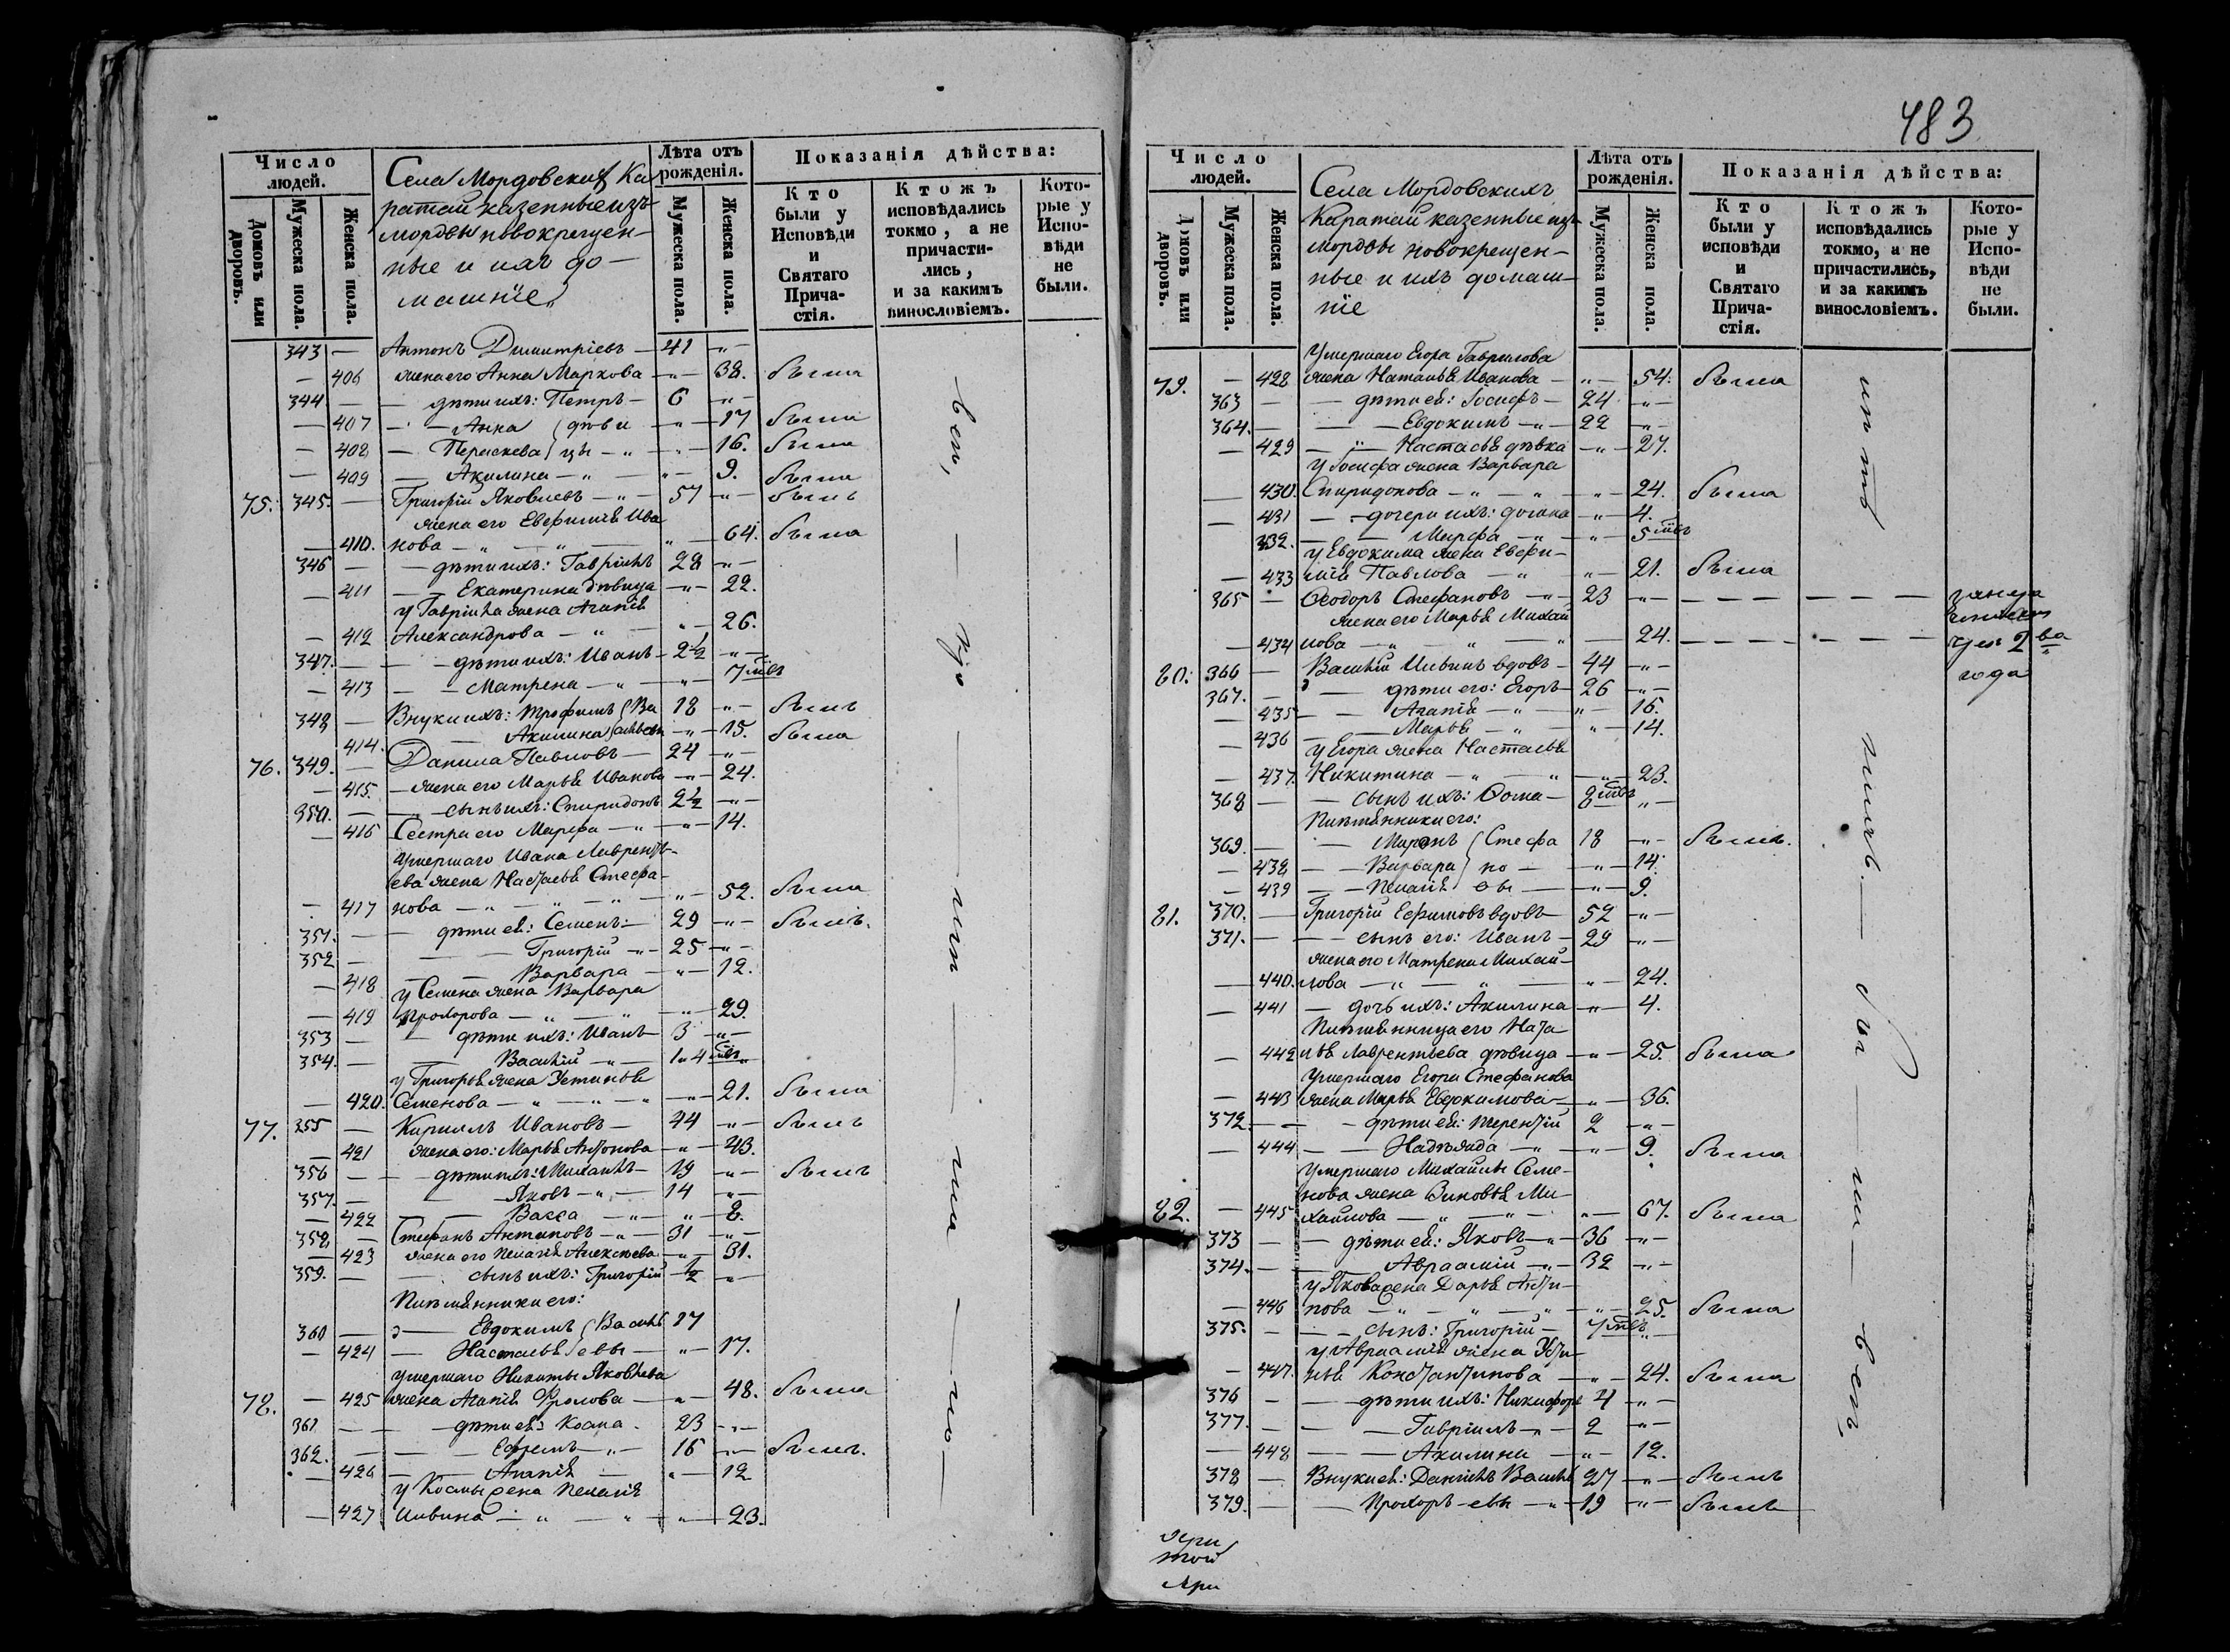 483
Число людей.
Домовъ или дворовъ.
Мужеска пола.
Женска пола.
Села Мордовских Ка
ратай казенные изъ
мордвы новокрещен-
ные и ихъ до-
машніе
Лѣта отъ рожденія.
Мужеска пола.
Женска пола.
Показанія дѣйства:
Кто были у Исповѣди и Святаго Прича- стія.
Ктожъ исповѣдались токмо, а не причасти- лись, и за какимъ винословіемъ.
Кото- рые у Испо- вѣди не были.
343 — Антонъ Димитріевъ — 41 -"-
— 406 жена его Анна Маркова -"- 38. была
344 — дѣти ихъ: Петръ — 6 -"-
— 407 — Анна (дѣви -"- 17 была
— 408 — Параскева) цы -"- 16. была
— 409 — Акилина -"- 9. была
75. 345. — Григорій Яковлевъ -"- 57 -"- былъ
жена его Евфимія Ива
— 410. нова -"- 64. была
346 — дѣти ихъ: Гавріилъ 28 -"-
— 411 — Екатерина дѣвица -"- 22.
у Гавріила жена Агапія
— 412 Александрова -"- 26.
347. — дѣти ихъ: Иванъ — 2½ -"-
— 413 — Матрена -"- 7 мѣс
348 — Внуки ихъ: Трофимъ (Ва 18 -"- былъ
414. Акилина (сильевы -"- 15. была
76. 349. — Данила Павловъ — 24 -"-
— 415. — жена его Марья Иванова -"- 24.
350. — сынъ ихъ: Спиридонъ 2½ -"-
— 416 Сестра его Марфа -"- 14.
Умершаго Ивана Лаврентъ-
ева жена Настасья Стефа-
— 417 нова -"- 52. была
351. — дѣти ея: Семенъ — 29 -"- былъ.
352 — Григорій -"- 25 -"-
— 418 — Варвара -"- 12.
у Семена жена Варвара
— 419 Прохорова -"- 29.
353 — дѣти ихъ: Иванъ — 3 -"-
354. — Василій -"- 1 4 мѣс
у Григорья жена Устинья
— 420. Семенова -"- 21. была
77. 355 — Кириллъ Ивановъ — 44 -"- былъ
— 421 жена его: Марья Антонова -"- 43.
356 — дѣти ихъ: Михаилъ — 19 -"- былъ
357. — Яковъ -"- 14 -"-
— 422 — Васса -"- 8.
358 — Стефанъ Антиповъ -"- 31 -"-
423 жена его Пелагія Алексѣева -"- 31.
359. — сынъ ихъ: Григорій ½ -"-
Племянники его:
360 — Евдокимъ (Василь 17
— 424 — Настасья) евы -"- 17.
умершаго Никиты Яковлева
78. — 425 жена Агапія Фролова — 48. была
361 — дѣти ея: Косма. 23 -"-
362. — Ефремъ -"- 16 -"- былъ.
— 426 — Агапія — 12
у Космы жена Пелагія
— 427 Ильина -"- 23.
Число людей.
Домовъ или дворовъ.
Мужеска пола.
Женска пола.
Села Мордовскихъ
Каратай казенные изъ
мордвы новокрещен-
ные и ихъ домаш-
ніе
Лѣта отъ рожденія.
Мужеска пола.
Женска пола.
Показанія дѣйства:
Кто были у исповѣди и Святаго Прича- стія.
Ктожъ исповѣдались токмо, а не причастились, и за какимъ винословіемъ.
Кото- рые у Испо- вѣди не были.
Умершаго Егора Гаврилова
79. — 428 жена Наталья Иванова -"- 54. была
363 — дѣти ея: Іосифъ — 24 -"-
364. — Евдокимъ -"- 22 -"-
— 429 — Настасья дѣвка -"- 27.
у Іосифа жена Варвара
— 430. Спиридонова -"- 24. была
— 431 — дочери ихъ: -"- 4.
432. — Марфа -"- 5 мѣс
у Евдокима жена Евфи-
— 433 мія Павлова -"- 21. была
365 — Ѳеодоръ Стефановъ -"- 23 -"-
жена его Марья Михай
— 434 лова -"- 24.
года
80. 366 — Василій Ильинъ вдовъ — 44 -"-
367. — дѣти его: Егоръ — 26 -"-
— 435 — Агапія -"- 16.
— 436 — Марья -"- 14.
у Егора жена Настасья
— 437. Никитина -"- 23.
368 — сынъ ихъ: Ѳома — 8 мѣс -"-
Племянники его:
369. — Миронъ (Стефа 18 -"- былъ.
— 438 — Варвара) но -"- 14.
— 439 — Пелагія вы -"- 9.
81. 370. — Григорій Ефимовъ вдовъ — 52 -"-
371. — сынъ его: Иванъ — 29 -"-
жена его Матрена Михай-
— 440. лова -"- 24.
— 441 — дочь ихъ: Акилина -"- 4.
Племянница его Ната-
— 442 лья Лаврентьева дѣвица -"- 25. была
Умершаго Егора Стефанова
— 443 жена Марья Евдокимова -"- 36.
372. — дѣти ея: Терентій 2 -"-
— 444 — Надежда -"- 9. была
Умершаго Михайлы Семе-
нова жена Зиновья Ми-
82. — 445 хайлова -"- 67. была
373 — дѣти ея: Яковъ -"- 36 -"-
374. — Авраамій -"- 32 -"-
у Якова жена Дарья Анти-
— 446 пова -"- 25. была
375. — сынъ: Григорій — 7 мѣс -"-
у Авраамія жена Усти-
— 447. нья Константинова -"- 24. была
376 — дѣти ихъ: Никифоръ 4 -"-
377. — Гавріилъ -"- 2 -"-
— 448 — Акилина -"- 12.
378 — Внуки ея: Даніилъ Василь 27 -"- былъ
379. — Прохоръ -евы -"- 19 -"- былъ